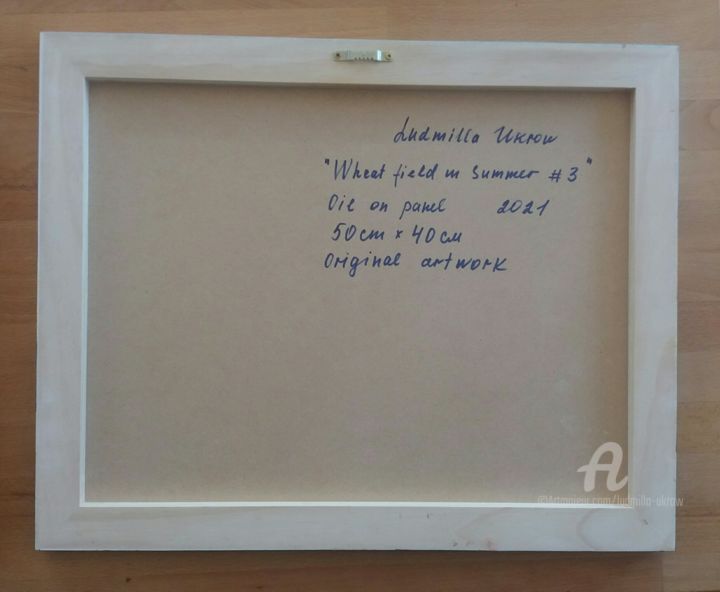 Ludmilla Ukrow
"Wheat field in Summer #3"
Oil on panel 2021
50cm x 40см
Original artwork
A
©Artmajeur.com/ludmilla-ukrow